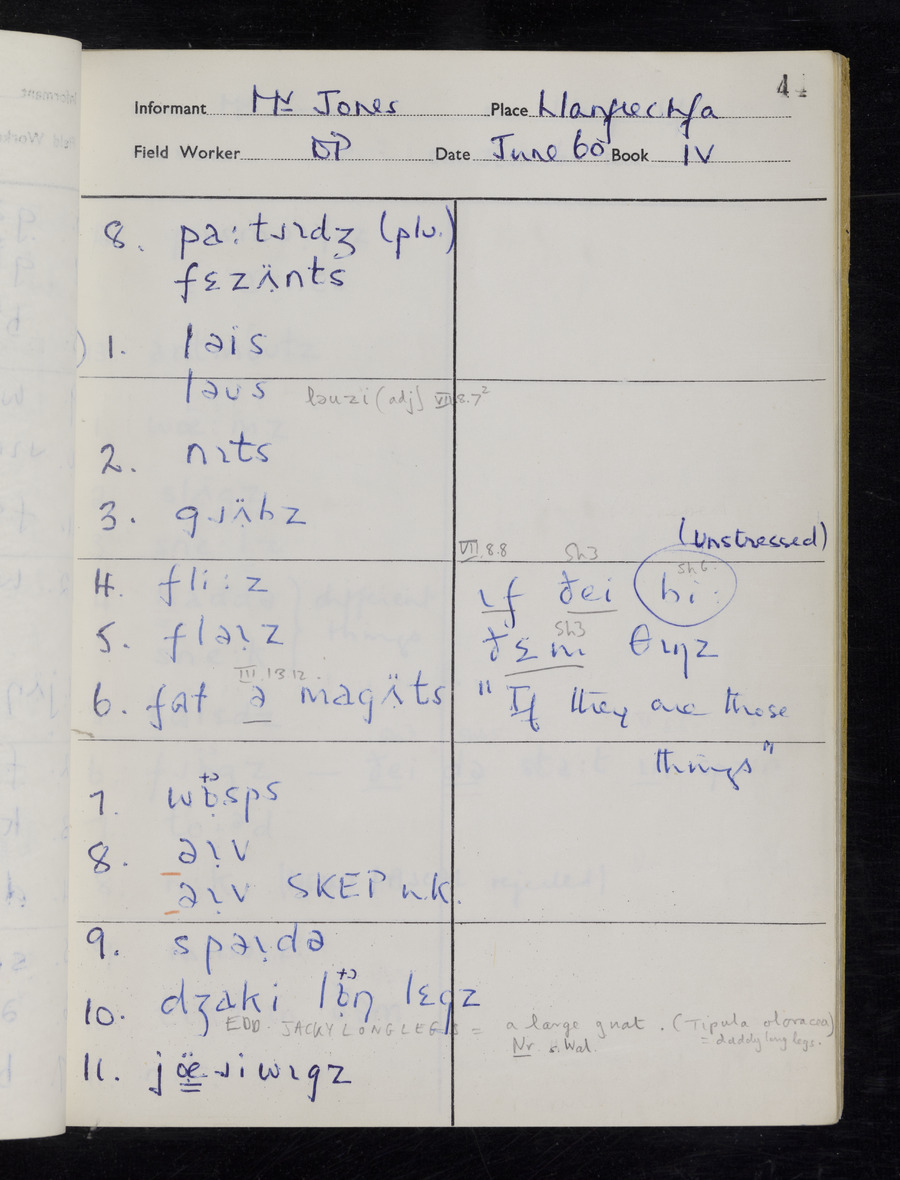 4
Informant Mr Jones Place Llanfrechfa
Field Worker DP Date June 60 Book IV
8. pa:tɹɪdʒ (plu.)
fɛzʌ̈nts
1. ləis
ləus ləuzi (adj) VII.8.7²
2. nɪts
3. gɹʌ̈bz
(unstressed)
VII.8.8 Sh3 Sh6
4. fli:z ɪf ðei bi:
5. fləɪz Sh3 ðɛm θɪŋz
III.13.12
6. fat ə magʌ̈ts "If they are those
things"
7. wɒ̈sps
8. əɪv
əɪv SKEP n.k.
9. spəɪdə
10. dʒaki lɒ̈ŋ lɛgz
EDD. JACKY LONGLEGS = a large gnat. (Tipula oloracea)
Nr. s.Wal. = daddy long legs.
11. jœ̈ɹiwɪgz